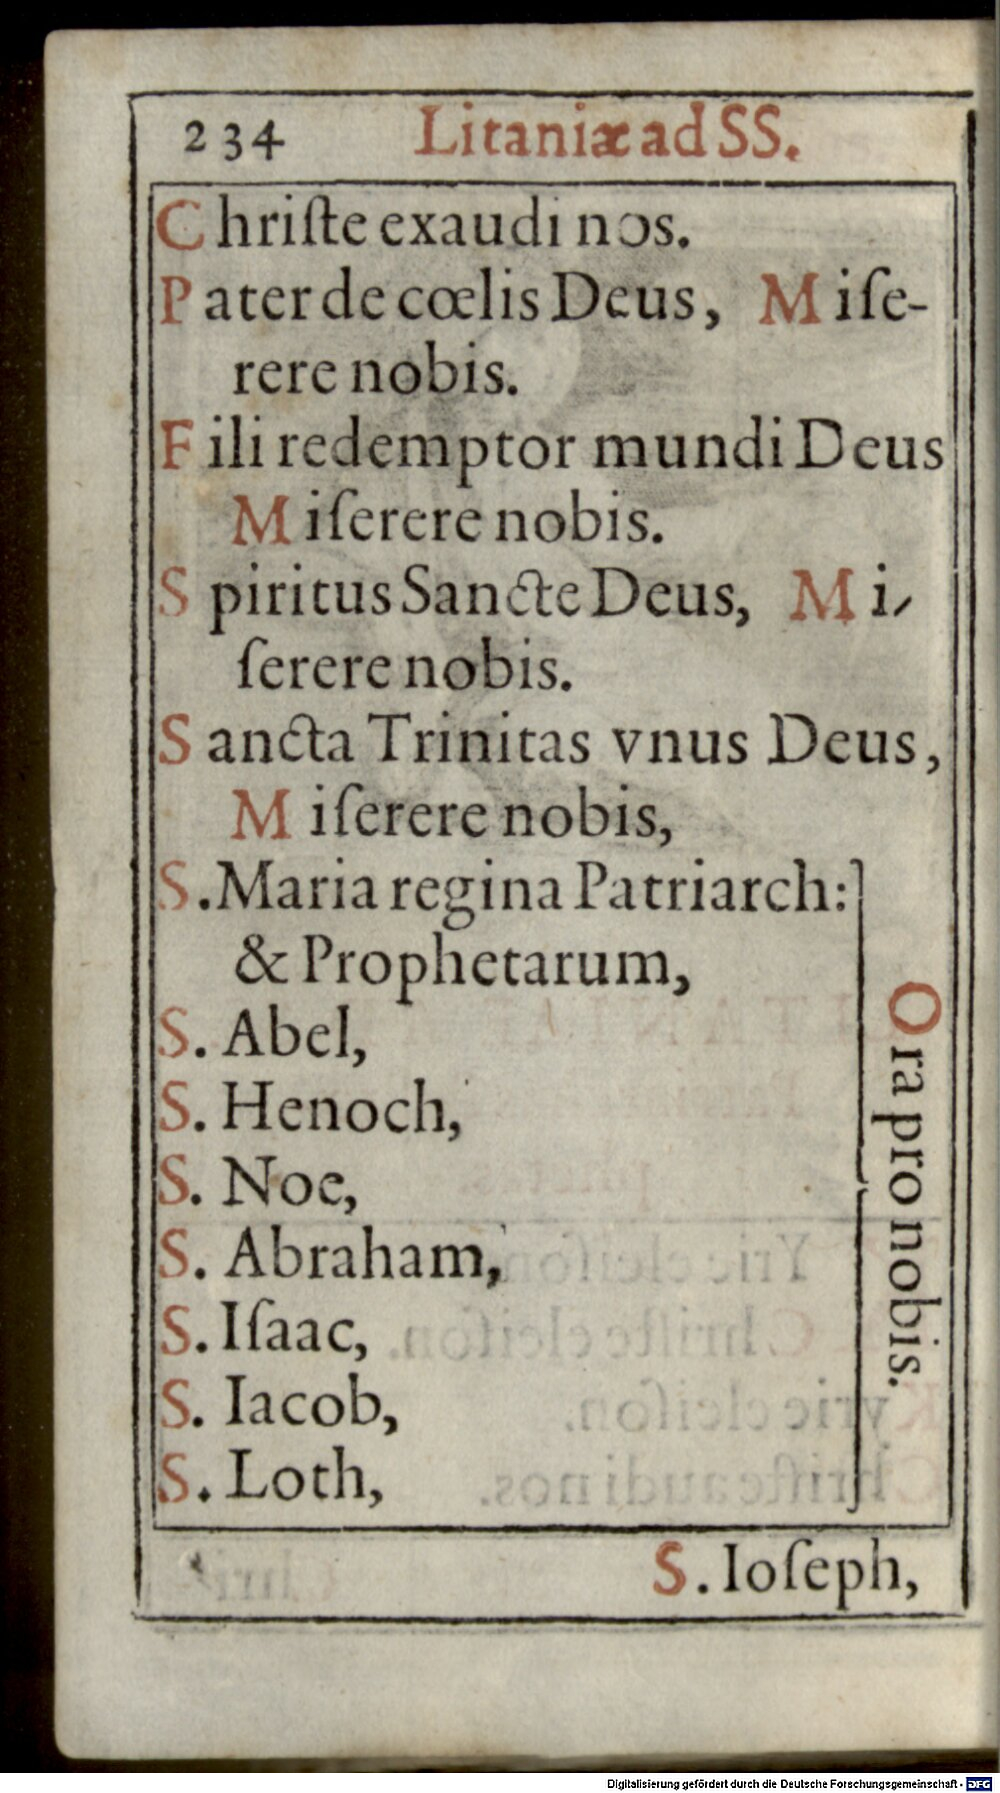 234 Litaniæ ad SS.
Chriſte exaudi nos.
Pater de cœlis Deus, Miſe-
rere nobis.
Fili redemptor mundi Deus
Miſerere nobis.
Spiritus Sancte Deus, Mi-
ſerere nobis.
Sancta Trinitas vnus Deus,
Miſerere nobis,
S. Maria regina Patriarch:
& Prophetarum,
S. Abel,
S. Henoch,
S. Noe,
S. Abraham,
S. Iſaac,
S. Iacob,
S. Loth,
Ora pro nobis.
S. Ioſeph,
Digitalisierung gefördert durch die Deutsche Forschungsgemeinschaft - DFG